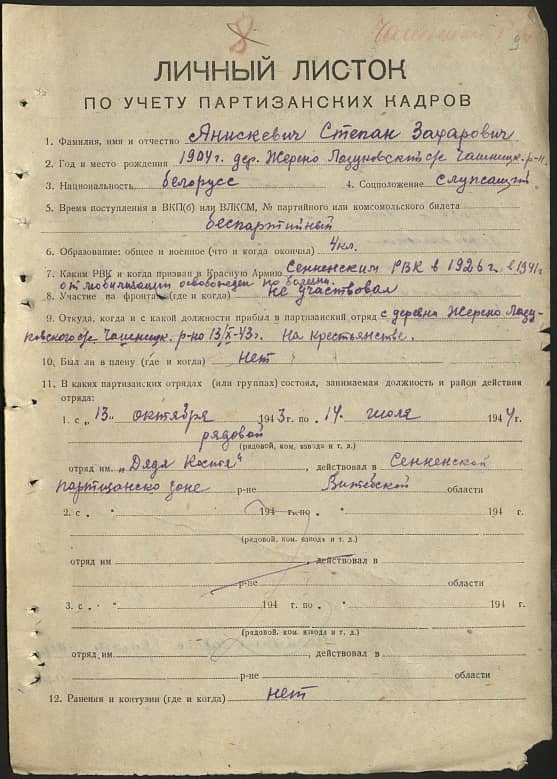 8
ЛИЧНЫЙ ЛИСТОК
ПО УЧЕТУ ПАРТИЗАНСКИХ КАДРОВ
1. Фамилия, имя и отчество Анискевич Степан Захарович
2. Год и место рождения 1904г. дер. Жерено Лазуковский с/с Чашницк. р-н
3. Национальность белорусс 4. Соцположение служащий
5. Время поступления в ВКП(б) или ВЛКСМ, № партийного или комсомольского билета
беспартийный
6. Образование: общее и военное (что и когда окончал) 4 кл.
7. Каким РВК и когда призван в Красную Армию Сенненским РВК в 1926 г. в 1941г
от мобилизации освобожден по болезни.
8. Участие на фронтах (где и когда) не участвовал
9. Откуда, когда и с какой должности прибыл в партизанский отряд с деревни Жерено Лазу-
ковского с/с Чашницк. р-на 13/X-43г. На крестьянстве.
10. Был ли в плену (где и когда) Нет
11. В каких партизанских отрядах (или группах) состоял, занимаемая должность и район действия
отряда:
1. с „13" октября 1943г. по „14" июля 1944г.
рядовой
(рядовой, ком. взвода и т. д.)
отряд им. „Дяди Кости", действовал в Сенненской
партизанско зоне р-не Витебской области
2. с „ " 194 г. по „ " 194 г.
(рядовой, ком. взвода и т. д.)
отряд им , действовал в
р-не области
3. с „ " 194 г. по „ " 194 г.
(рядовой, ком. взвода и т. д.)
отряд им. , действовал в
р-не области
12. Ранения и контузии (где и когда) нет